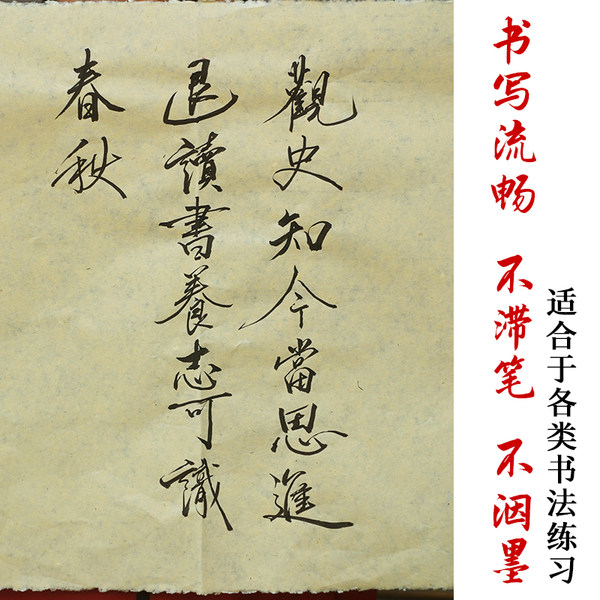 觀史知今當思進
退讀書養志可識
春秋
书写流畅 不滞笔 不洇墨
适合于各类书法练习